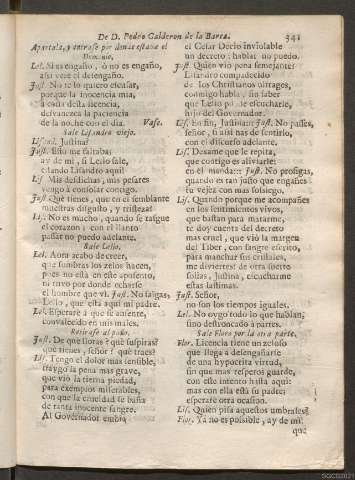 De D. Pedro Calderon de la Barca. 341
Apartala, y entrase por donde estava el
Demonio.
Lel. Si es engaño, ò no es engaño,
assi verè el desengaño.
Just. No te lo quiero escusar,
porque la inocencia mia,
à costa desta licencia,
desvanezca la paciencia
de la noche con el dia. Vase.
Sale Lisandro viejo.
Lisand. Justina?
Just. Esto me faltaba:
ay de mi, si Lelio sale,
estando Lisandro aqui!
Lis. Mis desdichas, mis pesares
vengo à consolar contigo.
Just. Què tienes, que en el semblante
muestras disgusto, y tristeza?
Lis. No es mucho, quando se rasgue
el corazon; con el llanto
passar no puedo adelante.
Sale Lelio.
Lel. Aora acabo de creer,
que sombras los zelos hacen,
pues no està en este aposento,
ni tuvo por donde echarse
el hombre que vì. Just. No salgas,
Lelio, que està aqui mi padre.
Lel. Esperarè à que se ausente,
convalecido en mis males.
Retirase al paño.
Just. De què lloras? què suspiras?
què tienes, señor? què traes?
Lis. Tengo el dolor mas sensible,
traygo la pena mas grave,
que viò la tierna piedad,
para exemplos miserables,
con que la crueldad se baña
de tanta inocente sangre.
Al Governador embia
el Cesar Decio inviolable
un decreto; hablar no puedo.
Just. Quien viò pena semejante?
Lisandro compadecido
de los Christianos ultrages,
conmigo habla, sin saber
que Lelio puede escucharle,
hijo del Governador.
Lis. En fin, Justina: Just. No passes,
señor, si assi has de sentirlo,
con el discurso adelante.
Lis. Dexame que le repita,
que contigo es aliviarle:
en èl manda: Just. No prosigas,
quando es tan justo que engañes
tu vejez con mas sossiego.
Lis. Quando porque me acompañes
en los sentimientos vivos,
que bastan para matarme,
te doy cuenta del decreto
mas cruel, que viò la margen
del Tiber, con sangre escrito,
para manchar sus cristales,
me diviertes? de otra suerte
solias, Justina, escucharme
estas lastimas.
Just. Señor,
no son los tiempos iguales.
Lel. No oygo todo lo que hablan,
sino destroncado à partes.
Sale Floro por la otra parte.
Flor. Licencia tiene un zeloso
que llega à desengañarse
de una hypocrita virtud,
sin que mas respetos guarde,
con este intento hasta aqui:
mas con ella està su padre;
esperarè otra ocasion.
Lis. Quien pisa aquestos umbrales?
Flor. Ya no es possible, ay de mi!
que